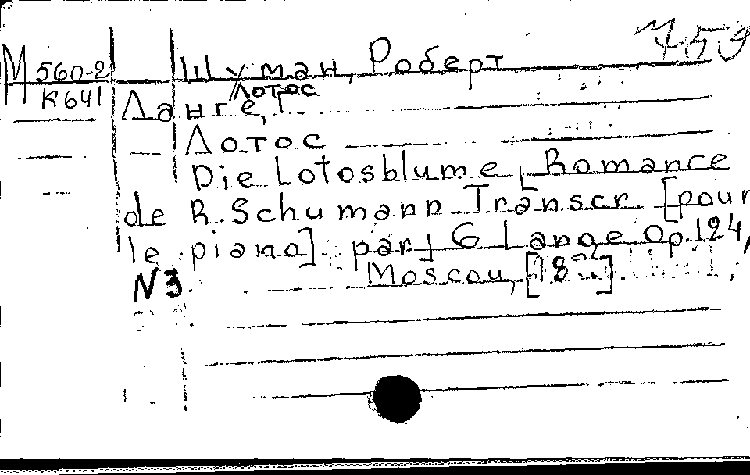 М 560-2 Шуман, Роберт
К 641 Лотос
Ланге, Г
Лотос
Die Lotosblume, Romance
de R. Schumann Transcr. [pour
le piano] par G Lange Op. 124,
N3 Moscou,